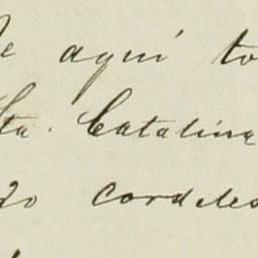 de aqui to
Sta. Catalina
do cordeles